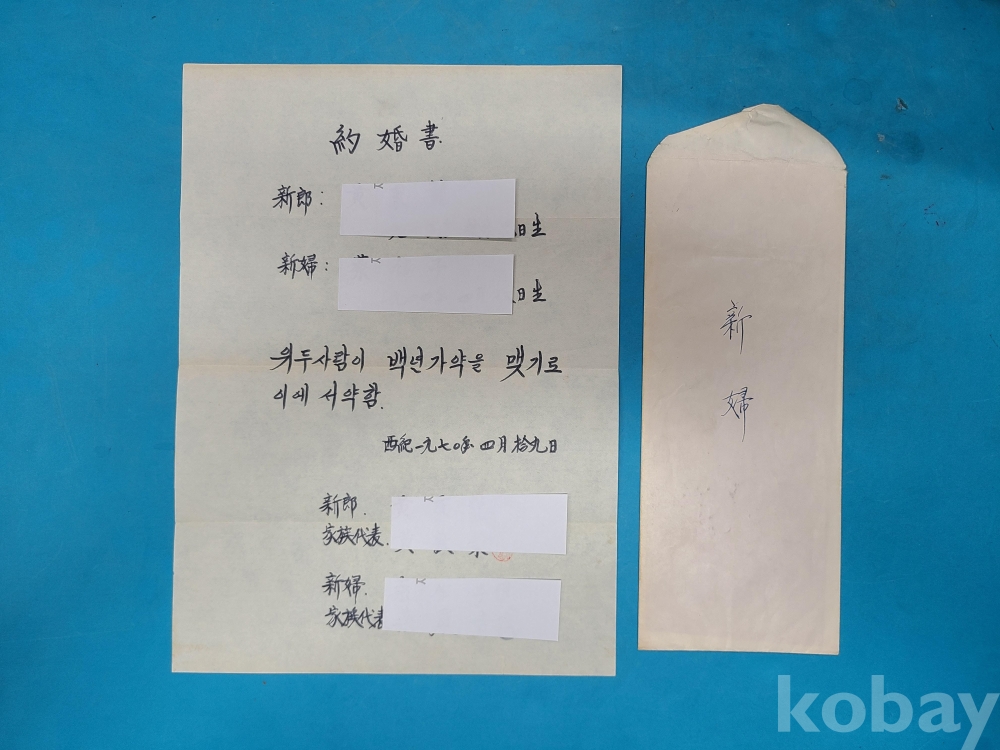 約婚書
新郎:
日生
新婦:
日生
위두사람이 백년가약을 맺기로
이에 서약함.
西紀一九七〇年 四月 拾九日
新郎.
家族代表.
新婦.
家族代表
新婦
kobay